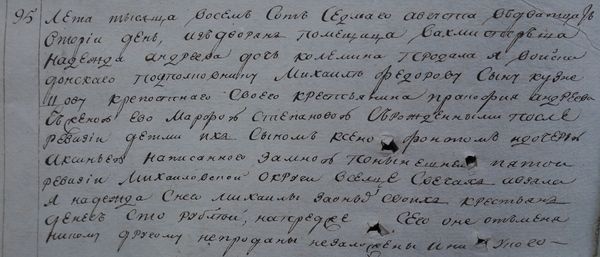 95 Лета тысяща восемь сотъ седмаго августа въ дватцать
вторый день, изъ дворянъ помещица вахмистерша
надежда андреева дочь колемина продала я войска
донскаго подполковнику михаилѣ федорову сыну кузне
цову крепостнаго своего крестьянина прокофия андреева
съ женою ево марфою степановою съ рожденными после
ревизіи детми ихъ сыномъ ксенофонтомъ и дочерью
аксиньею написанного за мною по нынешней пятой
ревизіи михайловской округи в селце а взяла
я надежда с него михайлы за оныхъ своихъ крестьянъ
денегъ сто рублей, напредже сего оне от меня
никому другому непроданы незаложены и ни у кого